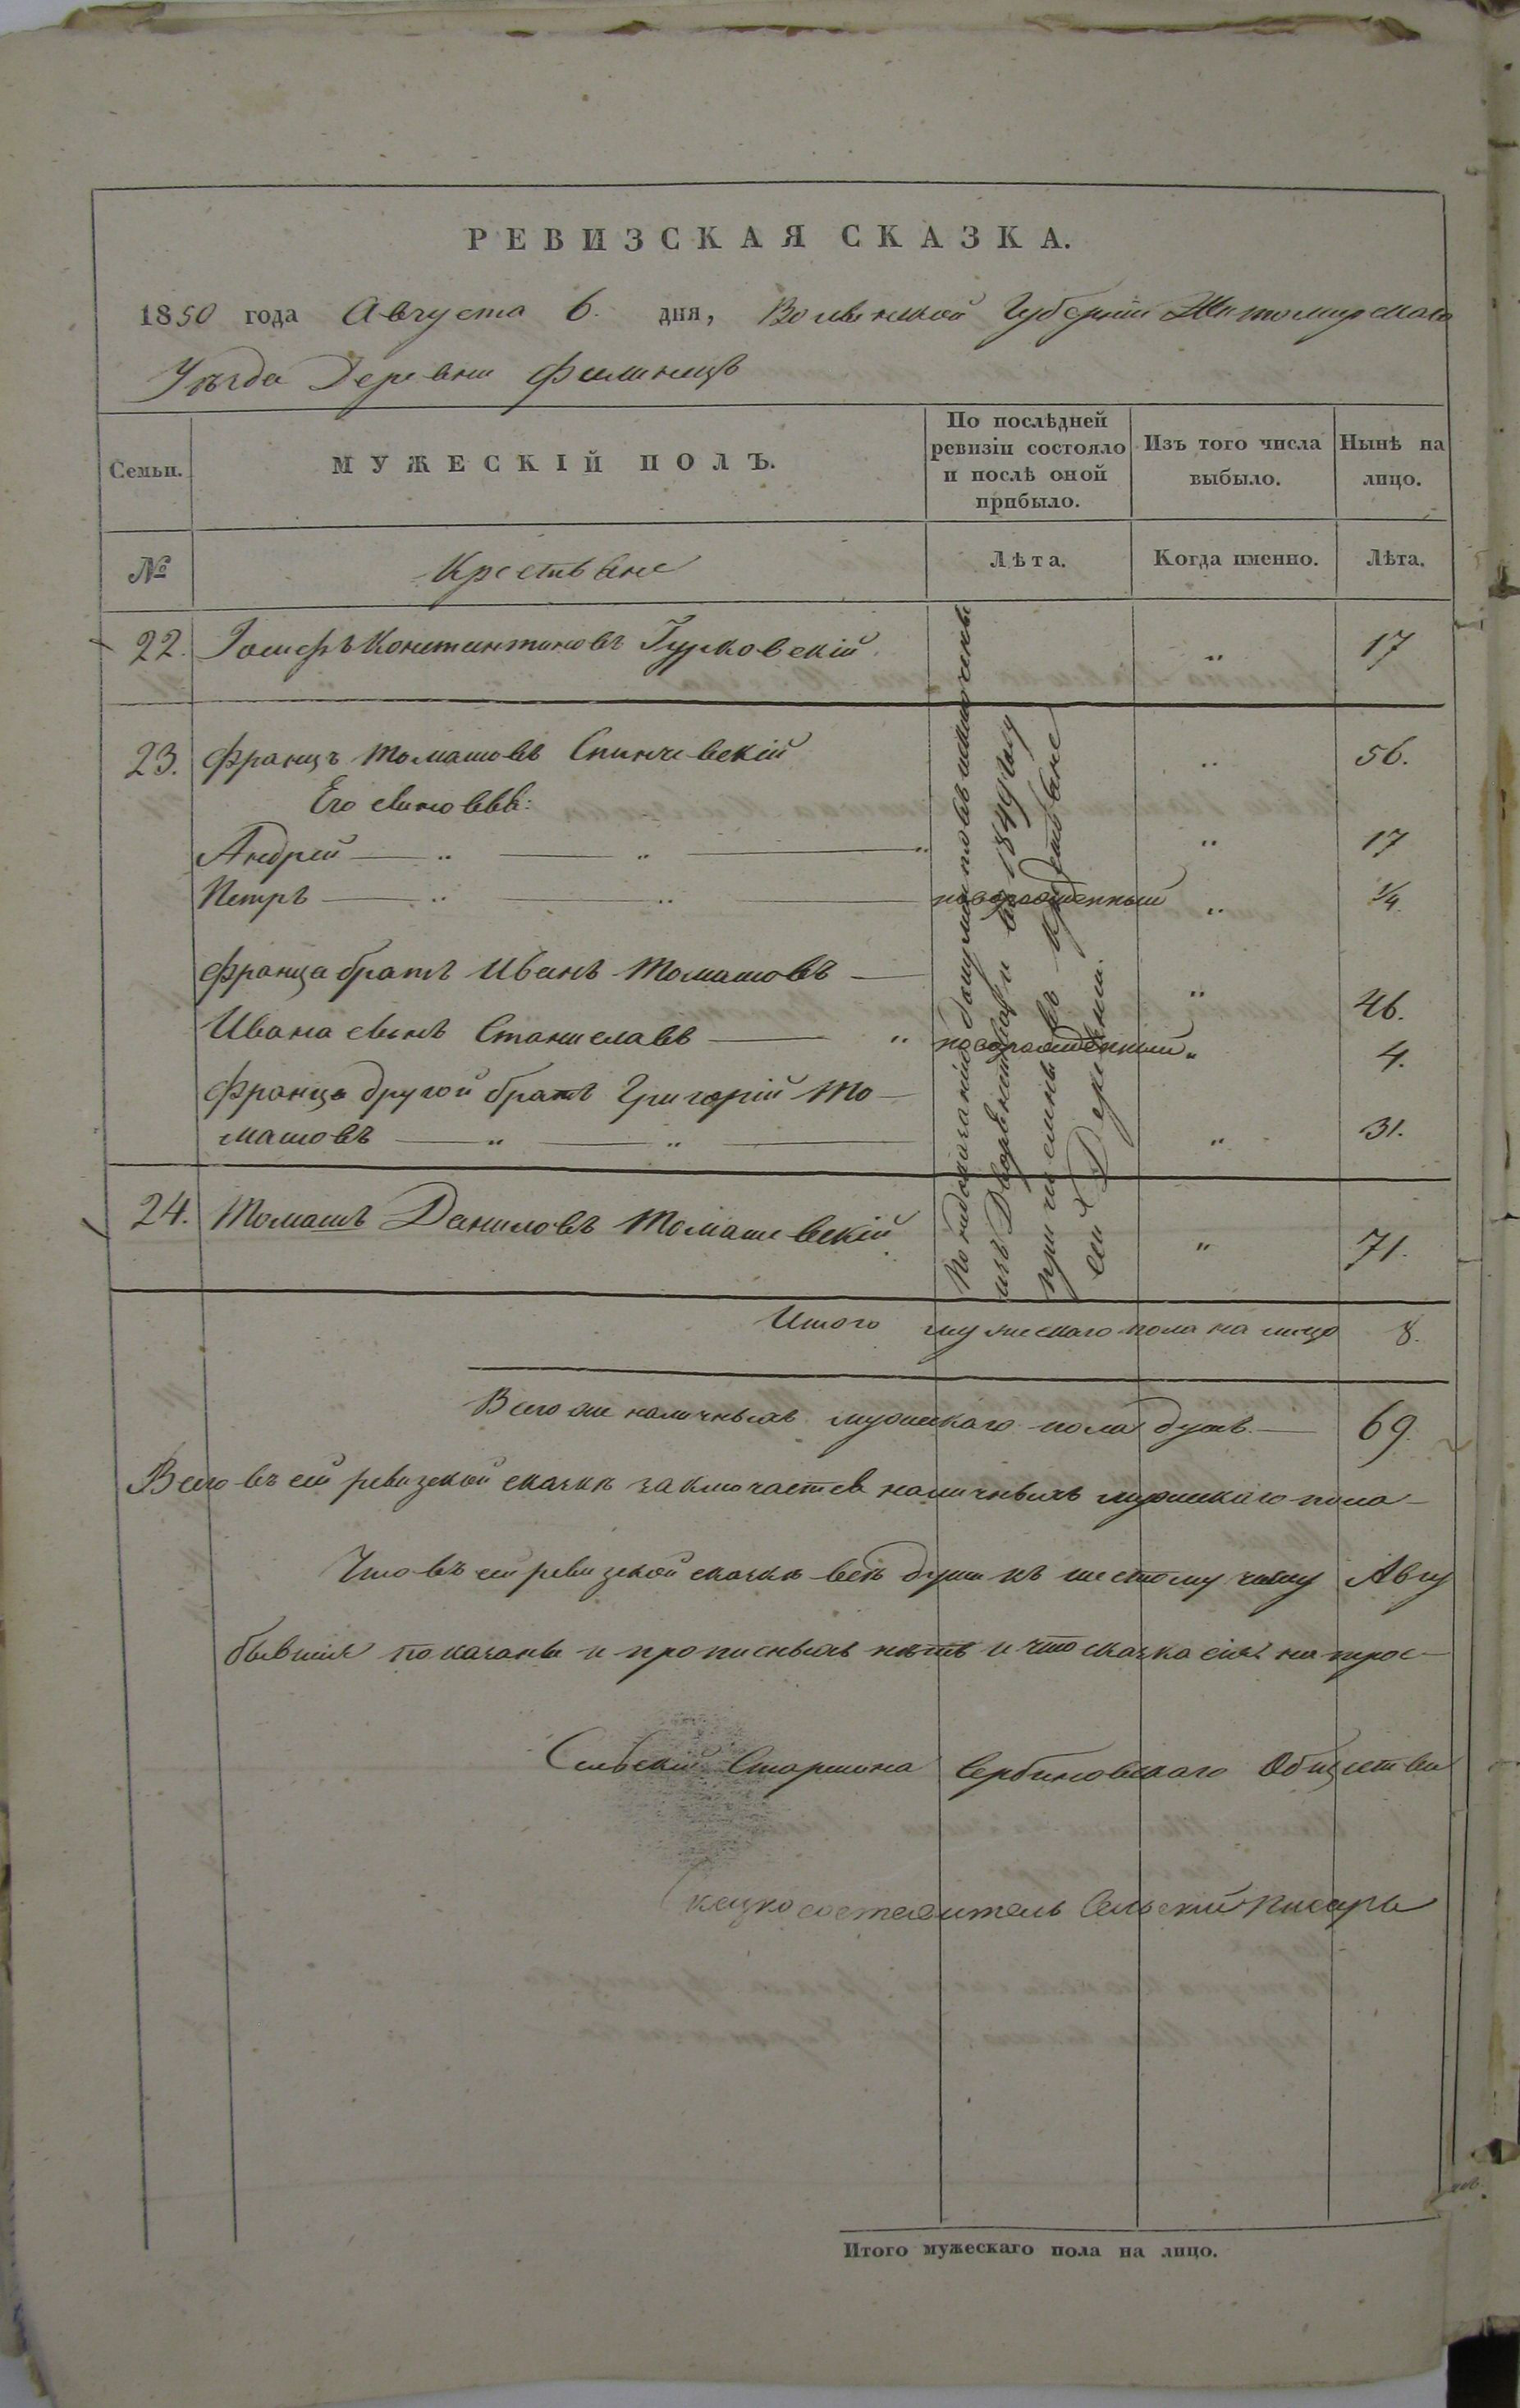 РЕВИЗСКАЯ СКАЗКА.
1850 года Августа 6. дня, Волынской Губерніи Житомирскаго
Уѣзда Деревни Филинецъ
Семьи.
МУЖЕСКІЙ ПОЛЪ.
По послѣдней
ревизіи состояло
и послѣ оной
прибыло.
Изъ того числа
выбыло.
Нынѣ на
лицо.
№
Крестьяне
Лѣта.
Когда именно.
Лѣта.
22. Іосифъ Константиновъ Гурковскій " 17
23. Францъ Томашовъ Спинчевскій " 56.
Его сыновья:
Андрей — " — " — " " 17
Петръ — " — " — новорожденный " 1/4
Франца братъ Иванъ Томашовъ — " 46.
Ивана сынъ Станиславъ — " новорожденный " 4.
Франца другой братъ Григорій То-
машовъ — " — " — " 31.
24. Томашъ Даниловъ Томашевскій " 71.
По недоказанію документовъ исключены
изъ Дворянства и въ 1849 году
причислены въ крестьяне
сей Деревни.
Итого мужескаго пола на лицо 8.
Всего же наличныхъ мужескаго пола душъ — 69.
Всего въ сей ревизской сказкѣ заключается наличныхъ мужескаго пола —
Что въ сей ревизской сказкѣ всѣ души къ шестому числу Авгу
бывшія показаны и прописныхъ нѣтъ и что сказка сія на прос-
Сельскій Старшина Сербиновскаго Общества
Скаско составитель Сельскій Писарь
Итого мужескаго пола на лицо.